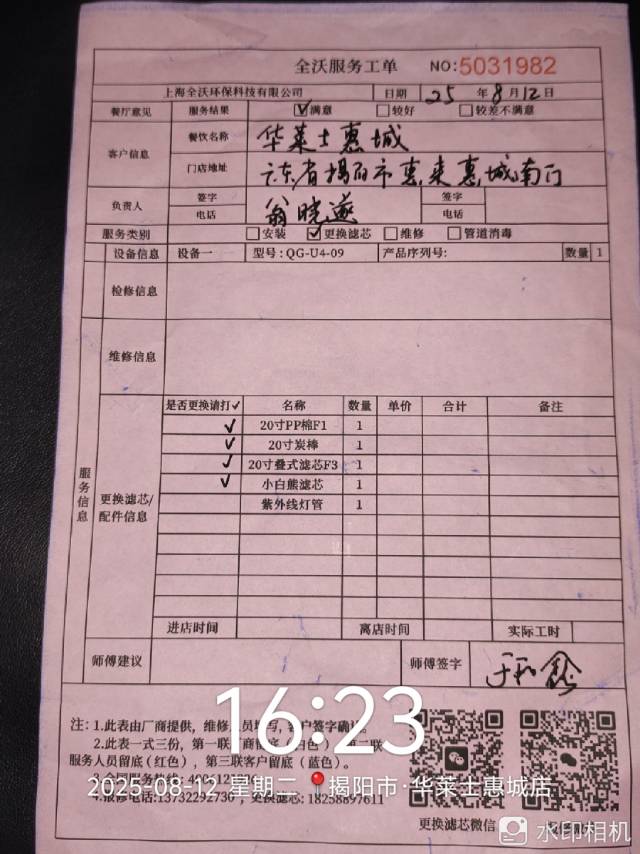 全沃服务工单 NO:5031982
上海全沃环保科技有限公司 日期 25 年 8 月 12 日
餐厅意见 服务结果 ☑满意 □较好 □较差不满意
客户信息 餐饮名称 华莱士惠城
门店地址 广东省揭阳市惠来惠城南门
负责人 签字 电话 翁晓燕 签字 电话
服务类别 □安装 ☑更换滤芯 □维修 □管道消毒
设备信息 设备一 型号: QG-U4-09 产品序列号: 数量 1
检修信息
维修信息
服务信息
更换滤芯/配件信息
是否更换请打✓ 名称 数量 单价 合计 备注
✓ 20寸PP棉F1 1
✓ 20寸炭棒 1
✓ 20寸叠式滤芯F3 1
✓ 小白熊滤芯 1
紫外线灯管 1
进店时间 离店时间 实际工时
师傅建议 师傅签字
16:23
注: 1.此表由厂商提供，维修 客户签字确认。
2.此表一式三份，第一联
服务人员留底(红色)，第三联客户留底（蓝色）。
2025-08-12 星期二 揭阳市·华莱士惠城店
4.报修电话:13732292730，更换滤芯: 18258897611
更换滤芯微信
水印相机